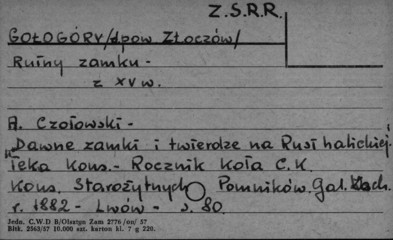 Z.S.R.R.
GOŁOGÓRY /pow Złoczów/
Ruiny zamku -
z XV w.
A. Czołowski -
"Dawne zamki i twierdze na Rusi halickiej".
Teka Kons. - Rocznik Koła C.K.
Kons. Starożytnych Pomników. Gal. Wsch.
r. 1882 - Lwów - s. 80.
Jedn. C.W.D B/Olsztyn Zam 2776/on/ 57
Bibk. 2563/57 10.000 szt. karton kl. 7 g 220.